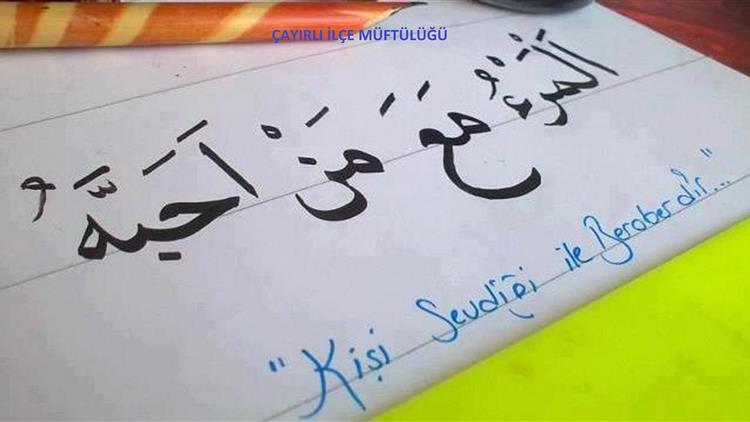 ÇAYIRLI İLÇE MÜFTÜLÜĞÜ
اَلْمَرْءُ مَعَ مَنْ اَحَبَّهُ
"Kişi Sevdiği ile Beraberdir..."